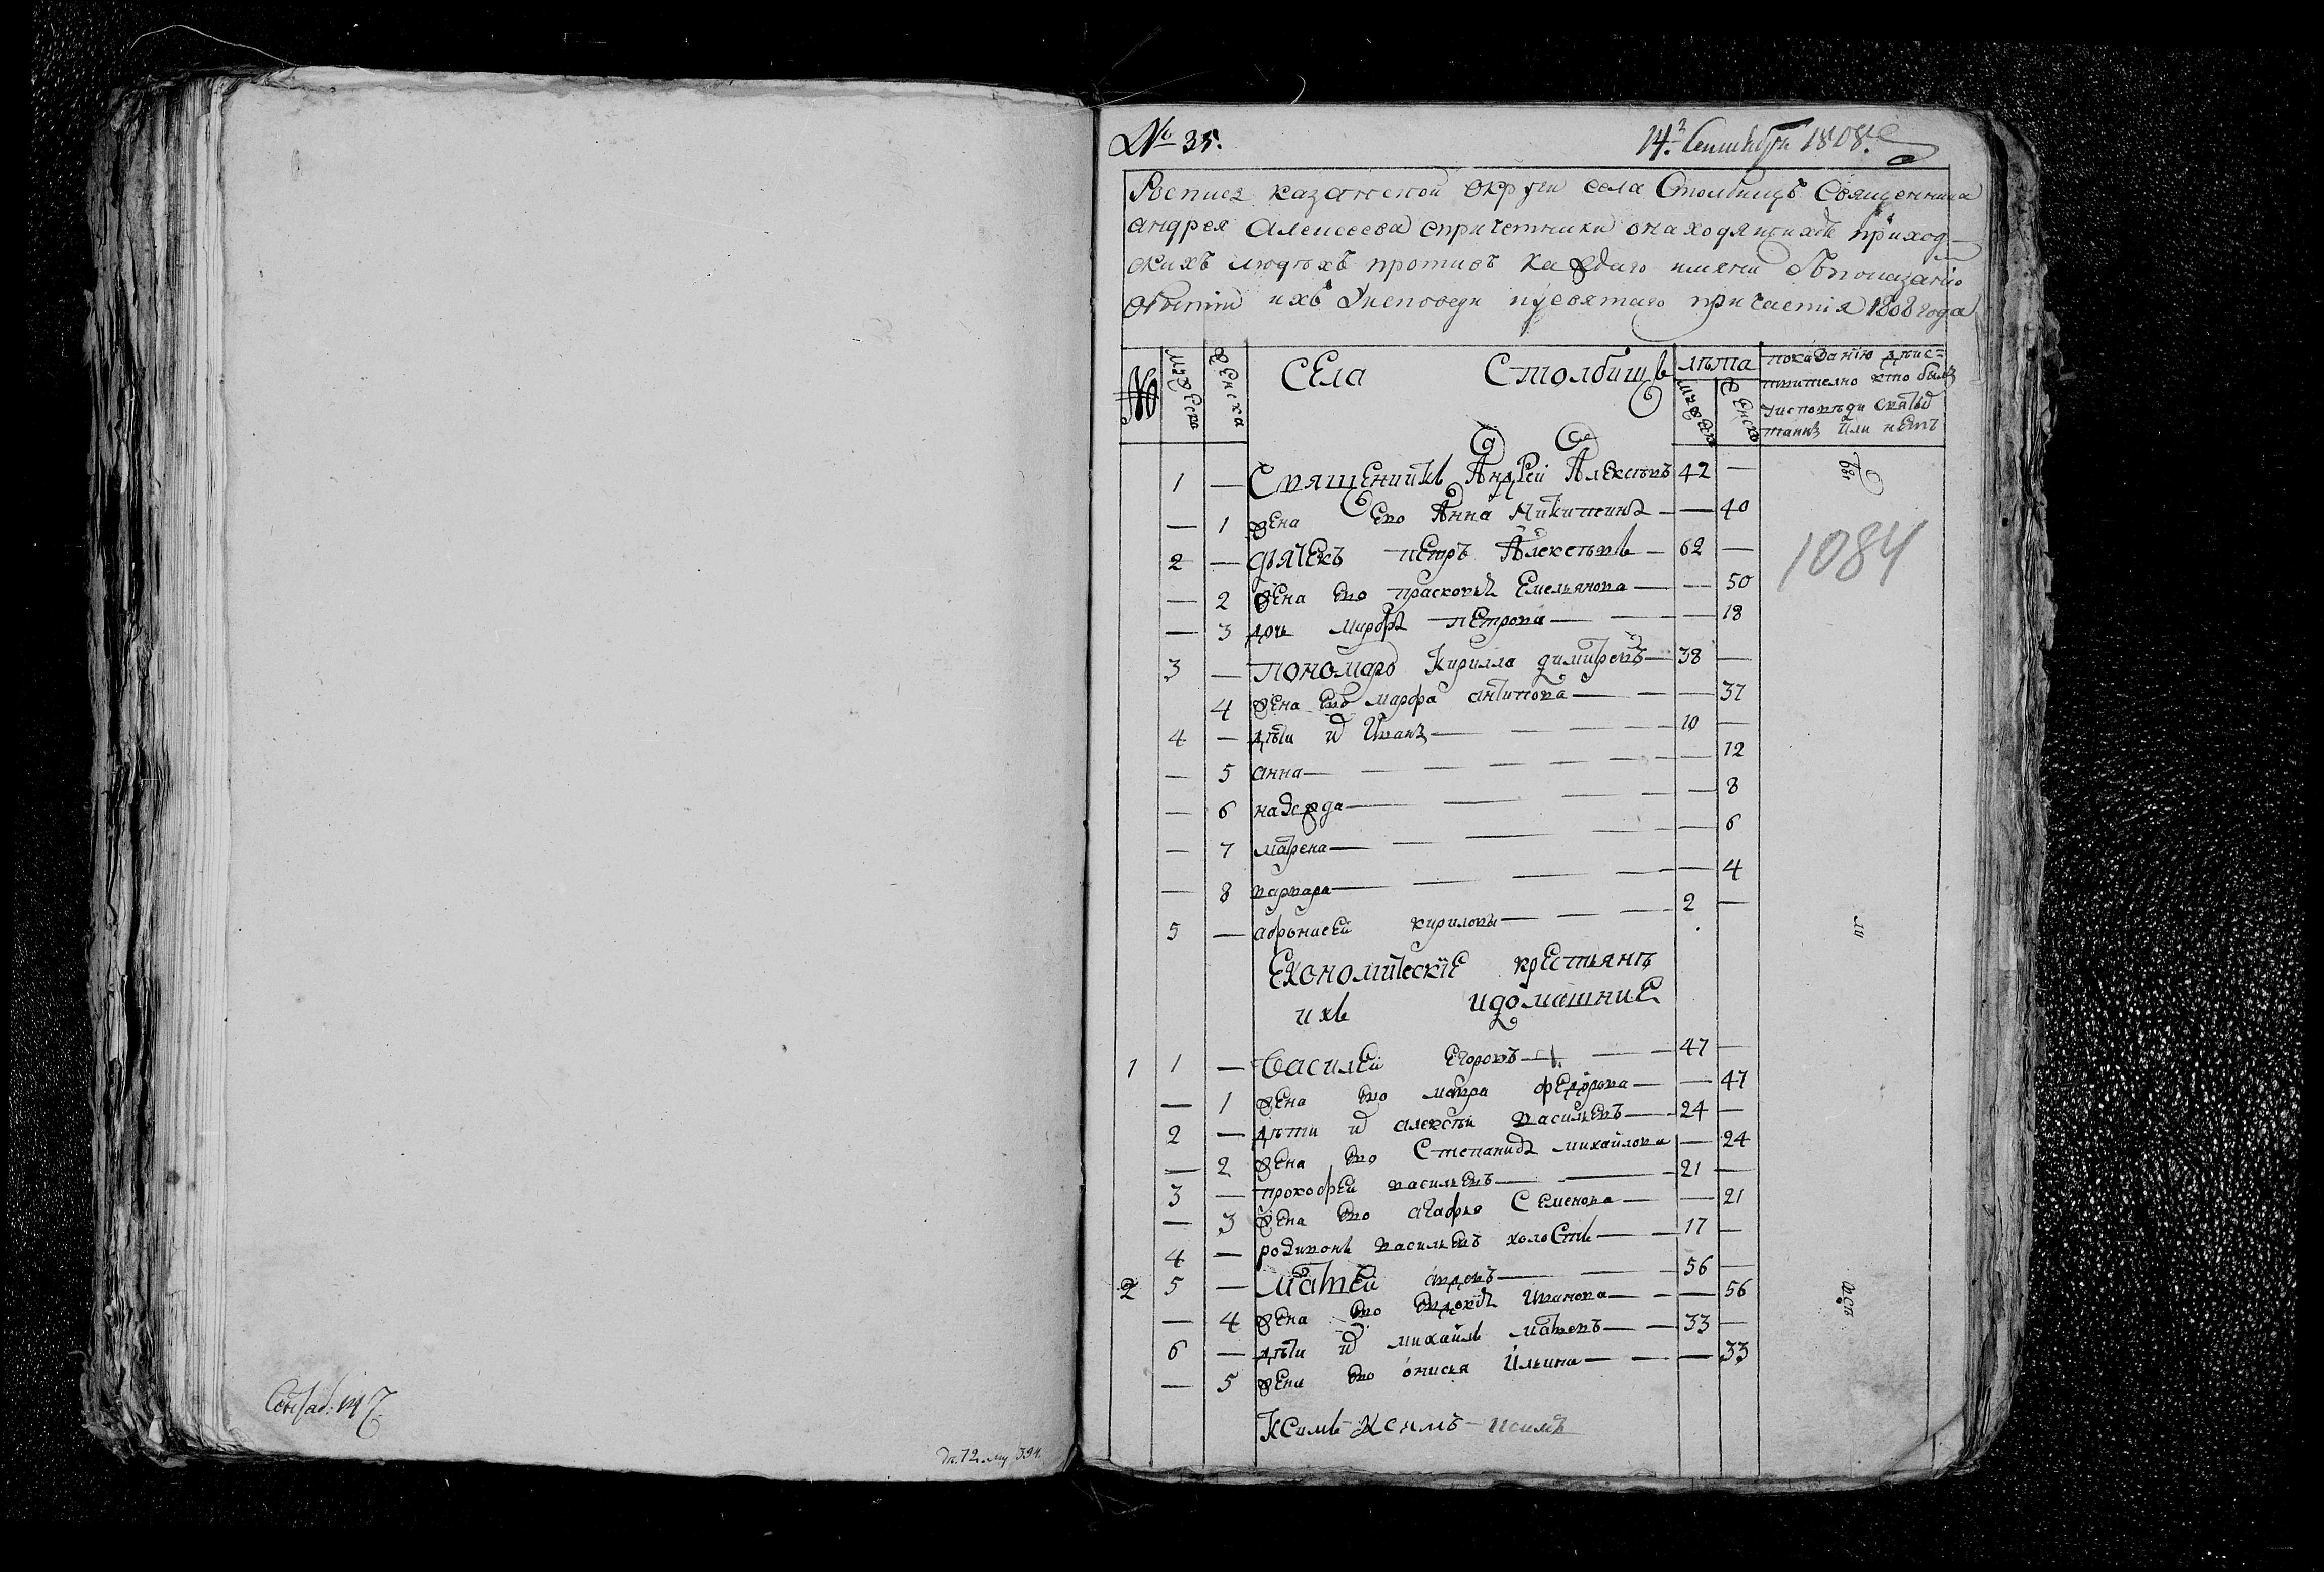 № 35.
14.го Сентября 1808.
Роспись казанской округи села Столбищъ Священника
андрея Алексеева спричетники онаходящихъ приход-
скихъ людехъ противъ каждаго имени Спопоказанiю
обытiи ихъ Уисповеди иусвятаго причастiя 1808 года
№
Мужеска
Женска
СЕла Столбищь
лѣта
мужеск
Женск
покаЗанiю дѣис-
твително кто былъ
Уисповѣди Святы
таинъ Или нЕтъ
1 — СвящЕникь АндРей Алексѣевъ 42 —
— 1 жЕна Ево Анна Никитина — — 40
2 — дьяЧЕкъ пЕтръ Алексѣевь — 62 —
— 2 жЕна Ево прасковья Емельянова — — 50
— 3 дочь марфа пЕтрова — — 18
3 — пономарь Кирилла димитревъ — 38 —
4 жЕна Ево марфа антипова — — 37
4 — дѣти и Иванъ — 10 —
— 5 анна — — 12
— 6 наДежда — — 8
— 7 матрена — — 6
— 8 варвара — — 4
5 — афонисЕй кириловы — 2 —
1084
ЕкономиЧескiЕ крЕстьянѣ
ихь идомашниЕ
1 1 — ВасилЕй Егоровъ — 47 —
— 1 жЕна Ево мавра фЕдорова — — 47
2 — дѣти и алексѣй васильЕвъ — 24 —
— 2 жЕна Ево Степанида михайлова — 24
3 — прокофЕй васильЕвъ — 21 —
— 3 жЕна Ево агафья Семенова — — 21
4 — родивонь васильЕвъ холоСть — 17 —
2 5 — МатвЕй авдевъ — 56 —
— 4 жЕна Ево Евдокiя Иванова — — 56
6 — дѣти и михайль матвевъ — 33 —
— 5 жЕна Ево онисья Ильина — — 33
Ксимь Ксимъ исимъ